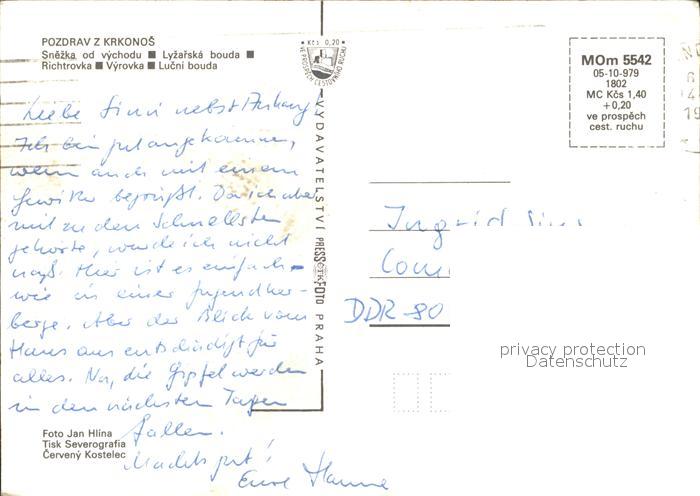 POZDRAV Z KRKONOŠ
Sněžka od východu ■ Lyžařská bouda ■
Richtrovka ■ Výrovka ■ Luční bouda
Kčs 0,20
VE PROSPĚCH CESTOVNÍHO RUCHU
MOm 5542
05-10-979
1802
MC Kčs 1,40
+0,20
ve prospěch
cest. ruchu
Liebe Sinni nebst Anhang
Ich bin gut angekommen,
wenn auch mit einem
Gewitter begrüßt. Da ich aber
mit zu den Schnellsten
gehörte, wurde ich nicht
naß. Hier ist es einfach -
wie in einer Jugendher-
berge. Aber der Blick vom
Haus aus entschädigt für
alles. Na, die Gipfel werden
in den nächsten Tagen
fallen.
Machts gut!
Eure Hanne
VYDAVATELSTVÍ PRESSFOTO PRAHA
Ingrid
DDR-80
privacy protection
Datenschutz
Foto Jan Hlína
Tisk Severografia
Červený Kostelec